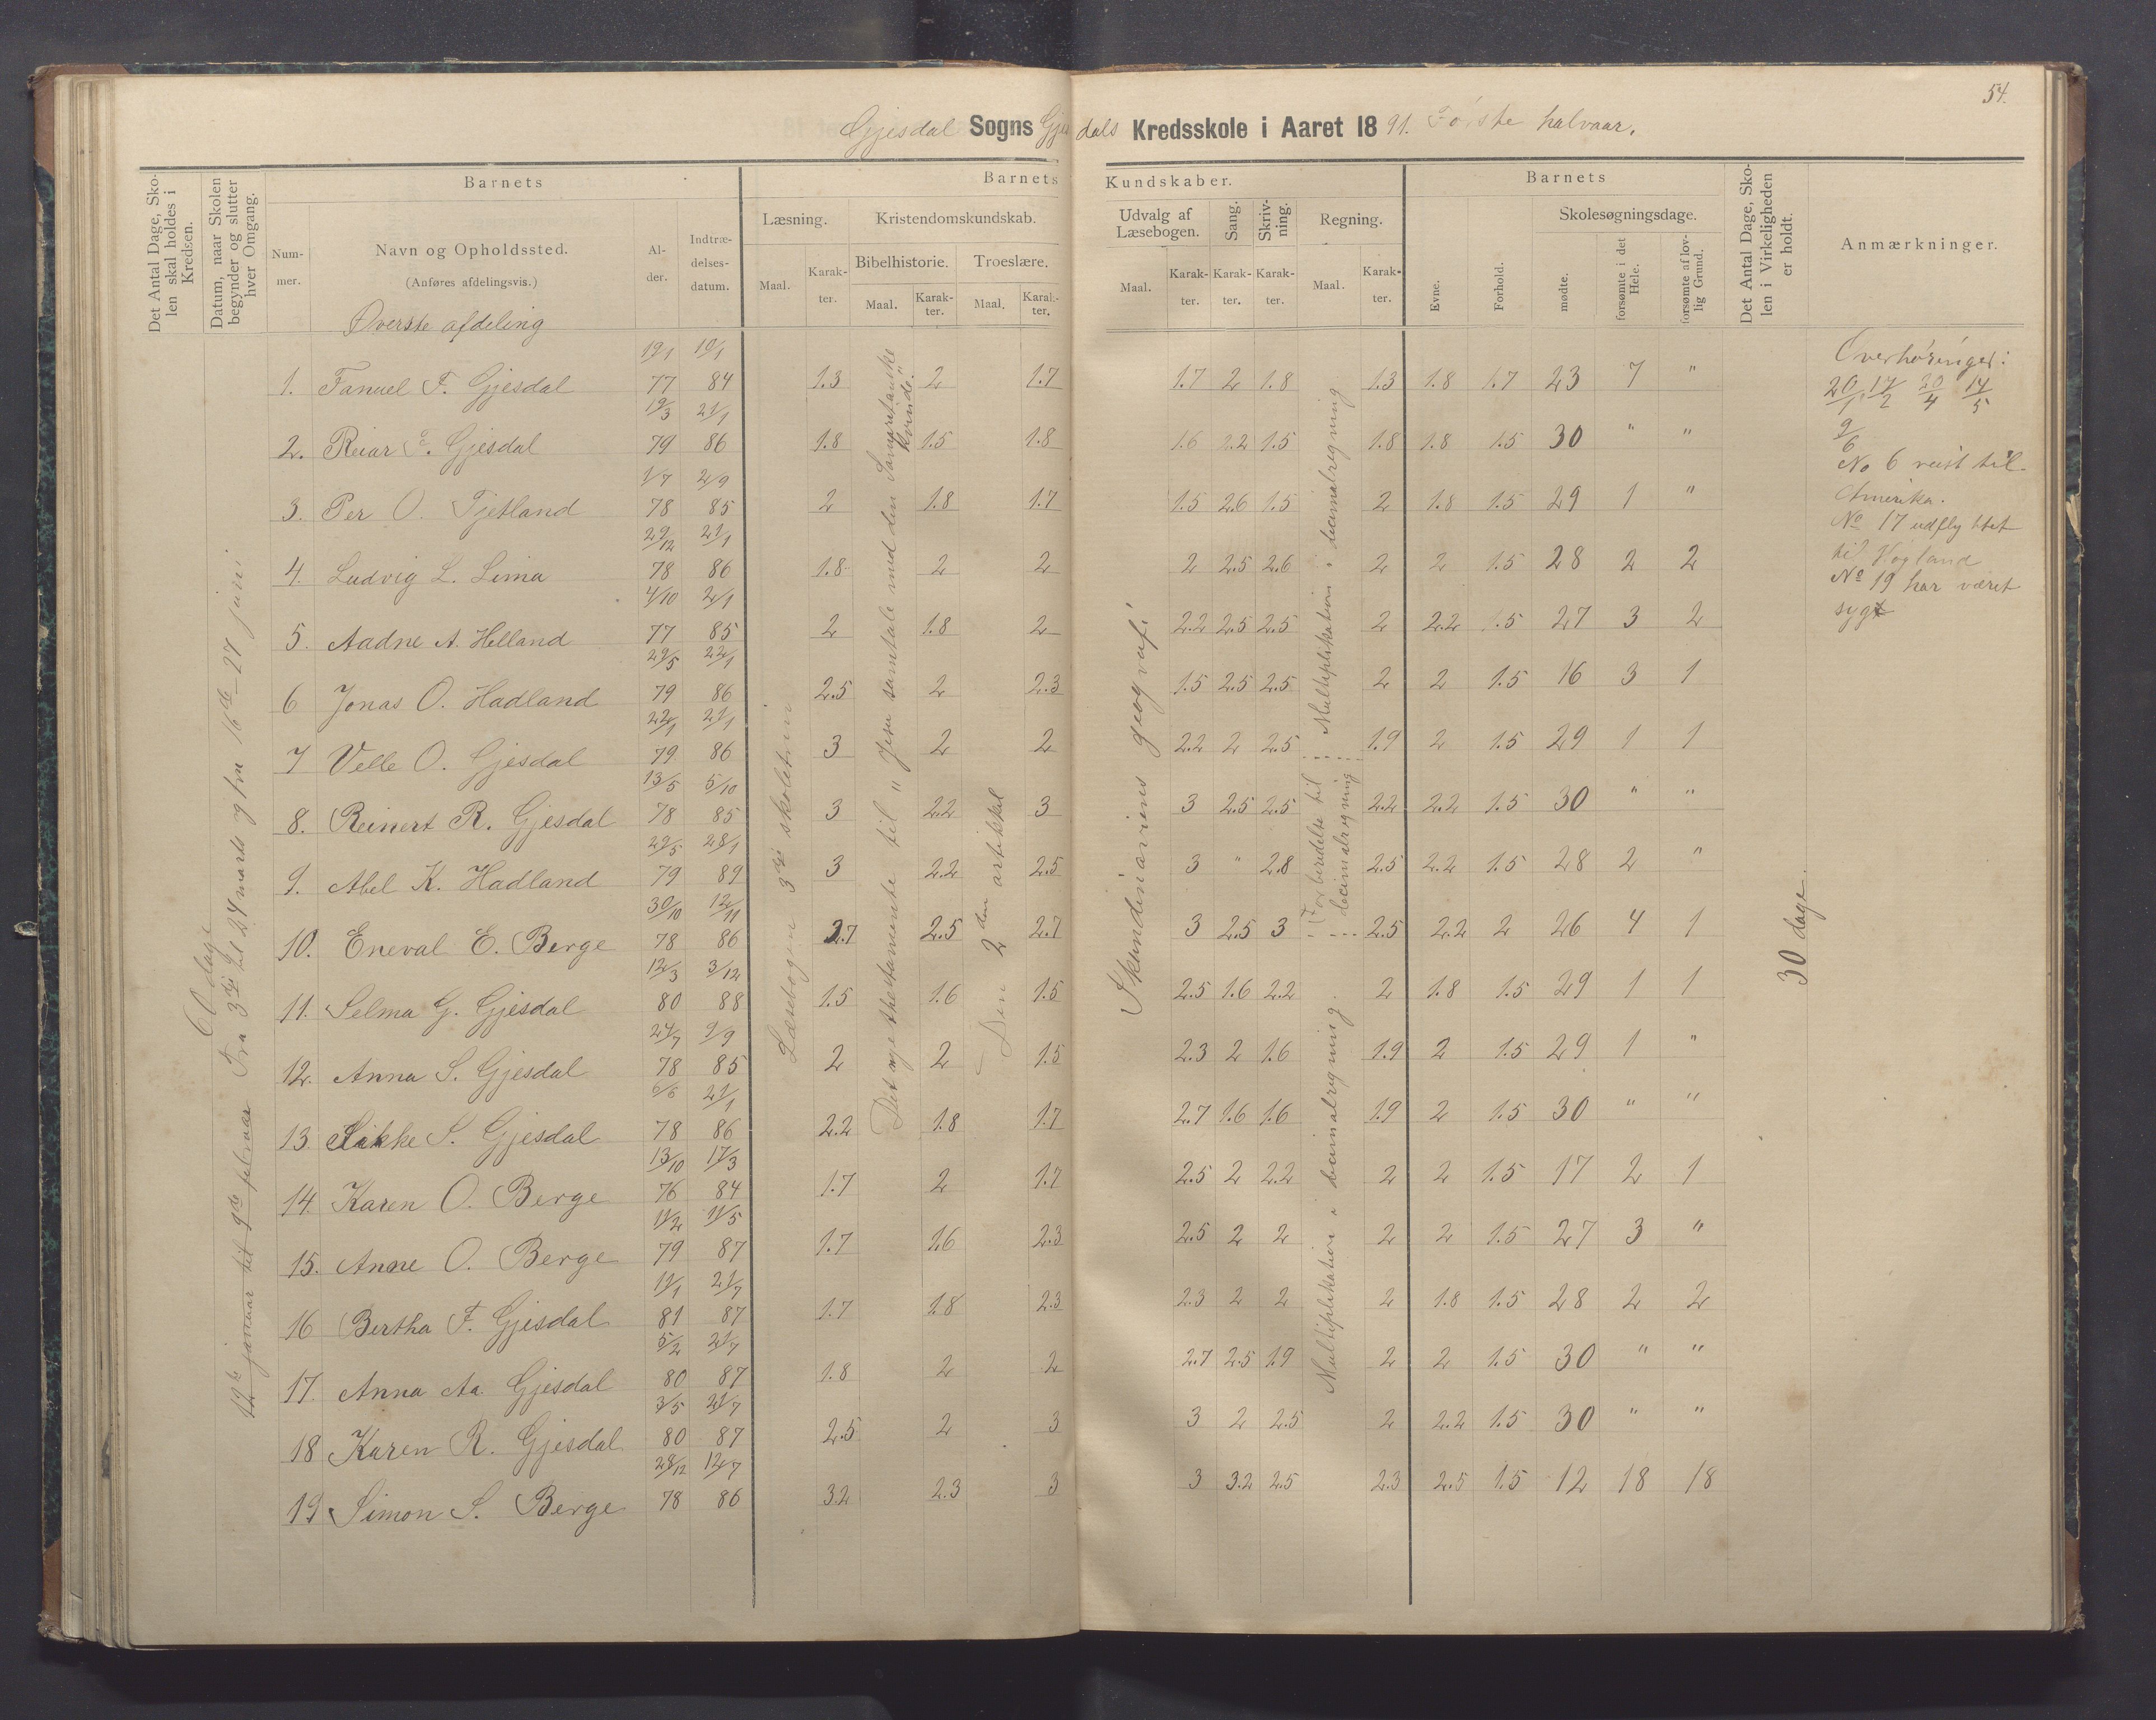 54.
Gjesdal Sogns Gjesdals Kredsskole i Aaret 1891. Første halvaar.
Det Antal Dage, Skolen skal holdes i Kredsen.
Datum, naar Skolen begynder og slutter hver Omgang.
Barnets
Nummer.
Navn og Opholdssted.
(Anføres afdelingsvis.)
Alder.
Indtrædelsesdatum.
Barnets Kundskaber.
Læsning.
Maal.
Karakter.
Kristendomskundskab.
Bibelhistorie.
Maal.
Karakter.
Troeslære.
Maal.
Karakter.
Udvalg af Læsebogen.
Maal.
Karakter.
Sang.
Karakter.
Skrivning.
Karakter.
Regning.
Maal.
Karakter.
Barnets
Evne.
Forhold.
Skolesøgningsdage.
mødte.
forsømte i det Hele.
forsømte af lovlig Grund.
Det Antal Dage, Skolen i Virkeligheden er holdt.
Anmærkninger.
Øverste afdeling
60 dage
12te januar til 9de februar Fra 3die til 24 marts og fra 16de - 27 juni
Læsebogen 3die skoletrin
Det nye thestamente til "Jesu samtale med den Samaritanske kvinde"
Den 2den artikkel
Skandinaviens geografi
Multiplikation i decimalregning
Forberedelse til decimalregning
Multiplikation i decimalregning.
30 dage.
1. Fanuel F. Gjesdal 19/1 77 19/1 84 1.3 2 1.7 1.7 2 1.8 1.3 1.8 1.7 23 7 "
2. Reiar F. Gjesdal 19/3 79 21/1 86 1.8 1.5 1.8 1.6 2.2 1.5 1.8 1.8 1.5 30 " "
3. Per O. Tjetland 1/7 78 2/9 85 2 1.8 1.7 1.5 2.6 1.5 2 1.8 1.5 29 1 "
4. Ludvig L. Lima 29/12 78 21/1 86 1.8 2 2 2 2.5 2.6 2 2 1.5 28 2 2
5. Aadne A. Helland 4/10 77 2/1 85 2 1.8 2 2.2 2.5 2.5 2 2.2 1.5 27 3 2
6 Jonas O. Hadland 29/5 79 22/1 86 2.5 2 2.3 1.5 2.5 2.5 2 2 1.5 16 3 1
7 Velle O. Gjesdal 22/1 79 21/1 86 3 2 2 2.2 2 2.5 1.9 2 1.5 29 1 1
8. Reinert R. Gjesdal 13/5 78 5/10 85 3 2.2 3 3 2.5 2.5 2.2 2.2 1.5 30 " "
9. Abel K. Hadland 29/5 79 28/1 89 3 2.2 2.5 3 " 2.8 2.5 2.2 1.5 28 2 "
10. Eneval E. Berge 30/10 78 12/11 86 2.7 2.5 2.7 3 2.5 3 2.5 2.2 2 26 4 1
11. Selma G. Gjesdal 12/3 80 3/12 88 1.5 1.6 1.5 2.5 1.6 2.2 2 1.8 1.5 29 1 1
12. Anna S. Gjesdal 24/7 78 9/9 85 2 2 1.5 2.3 2 1.6 1.9 2 1.5 29 1 "
13. S. Gjesdal 6/6 78 21/1 86 2.2 1.8 1.7 2.7 1.6 1.6 1.9 2 1.5 30 " "
14. Karen O. Berge 13/10 76 17/3 84 1.7 2 1.7 2.5 2 2.2 2 2 1.5 17 2 1
15. Anne O. Berge 11/2 79 11/5 87 1.7 1.6 2.3 2.5 2 2 2 2 1.5 27 3 "
16 Bertha F. Gjesdal 11/1 81 21/7 87 1.7 1.8 2.3 2.3 2 2 2 1.8 1.5 28 2 2
17. Anna Aa. Gjesdal 5/2 80 21/7 87 1.8 2 2 2.7 2.5 1.9 2 2 1.5 30 " "
18 Karen R. Gjesdal 3/5 80 21/7 87 2.5 2 3 3 2 2.5 2 2.2 1.5 30 " "
19 Simon S. Berge 28/12 78 12/7 86 3.2 2.3 3 3 3.2 2.5 2.3 2.5 1.5 12 18 18
Overhøringer:
20/1 17/2 20/4 14/5
9/6
No 6 reist til
Amerika.
No 17 udflyttet
til Høgland
No 19 har været
syg